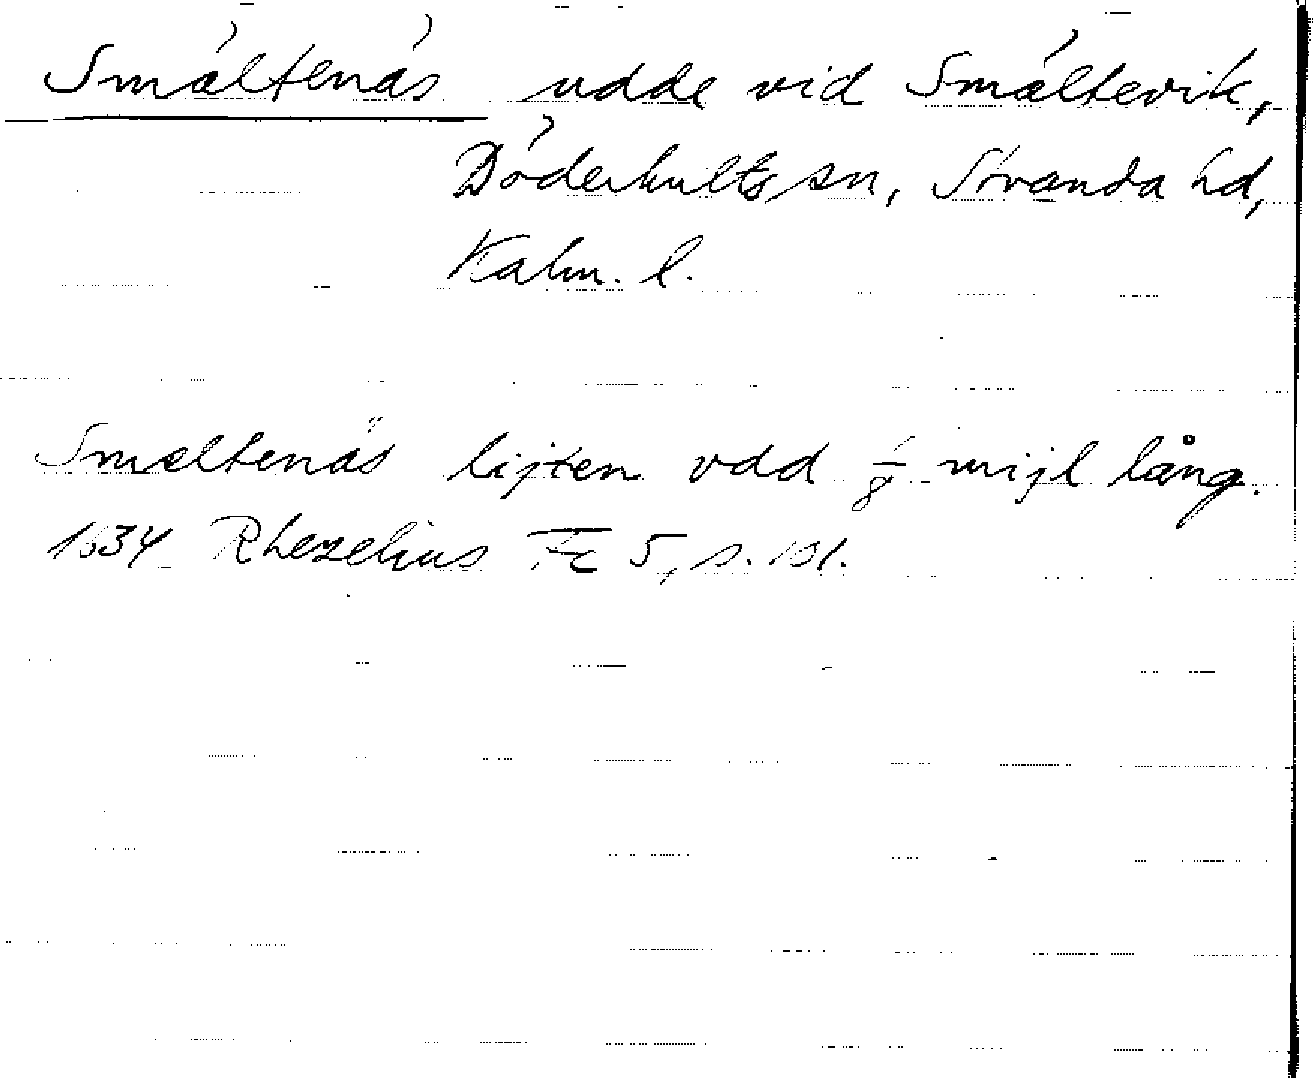 Smältenäs udde vid Smältevik,
Döderhults sn, Stranda hd,
Kalm. l.
Smeltenäs lijten vdd 1/8 mijl lång.
1634 Rhezelius Fc 5, s. 101.